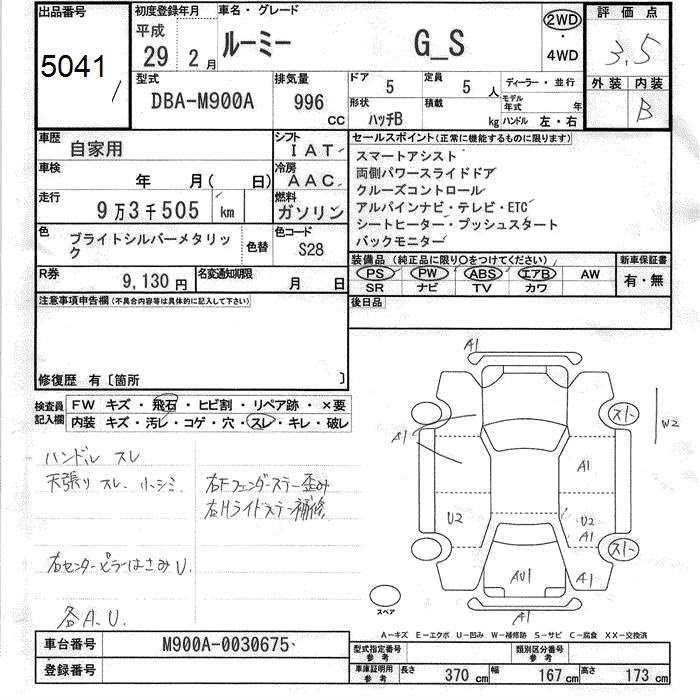 出品番号
5041
初度登録年月
平成
29 年 2 月
車名・グレード
ルーミー G_S
2WD
・
4WD
評価点
3.5
外装 内装
B
型式
DBA-M900A
排気量
996 cc
ドア 5
定員 5 人
形状 ハッチB
積載 kg
ディーラー・並行
モデル年式 年
ハンドル 左・右
車歴 自家用
シフト IAT
車検 年 月( 日)
冷房 AAC
走行 9万3千505 km
燃料 ガソリン
色 ブライトシルバーメタリック
色替
色コード S28
R券 9,130円
名変通知期限 月 日
セールスポイント(正常に機能するものに限ります)
スマートアシスト
両側パワースライドドア
クルーズコントロール
アルパインナビ・テレビ・ETC
シートヒーター・プッシュスタート
バックモニター
装備品(純正品に限り○をつけてください)
PS PW ABS エアB AW
SR ナビ TV カワ
新車保証書
有・無
後日品
注意事項申告欄(不具合内容等は具体的に記入して下さい)
修復歴 有〔箇所 〕
検査員記入欄
FW キズ・飛石・ヒビ割・リペア跡・×要
内装 キズ・汚レ・コゲ・穴・スレ・キレ・破レ
ハンドル スレ
天張り スレ、小シミ
右Fフェンダーステー歪み
右Hライドステー補修
右センターピラーはさみU.
各A、U.
A1
A1
スト
W2
A1
U2
U2
A1
スト
AU1
A1
A1
スペア
A-キズ E-エクボ U-凹み W-補修跡 S-サビ C-腐食 XX-交換済
車台番号 M900A-0030675
登録番号
型式指定番号 参考
類別区分番号 参考
車庫証明用 参考
長さ 370 cm 幅 167 cm 高さ 173 cm